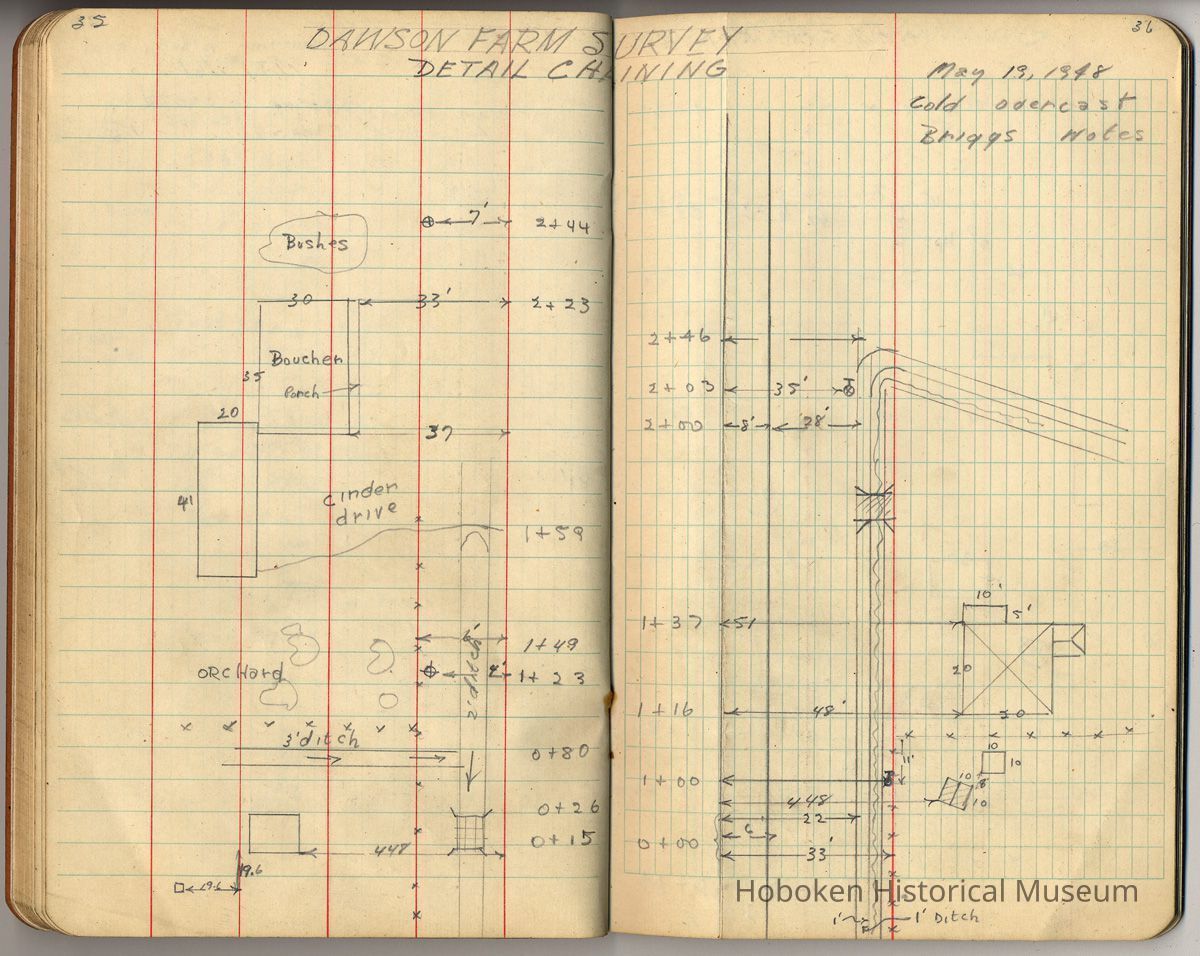 35
36
DAWSON FARM SURVEY
DETAIL CHAINING
May 19, 1948
Cold overcast
Briggs Notes
7'
2+44
Bushes
30
33'
2+23
Boucher
35
Porch
20
37
41
cinder
drive
1+59
6'
1+49
ORCHARD
2'
1+23
2' ditch
3' ditch
0+80
0+26
0+15
448
19.6
19.6
2+46
2+03
35'
2+00
8'
28'
10'
5'
1+37
51
20
1+16
48'
20
10
10
1+00
11'
10
10
448
22
6'
0+00
33'
1'
1' Ditch
Hoboken Historical Museum